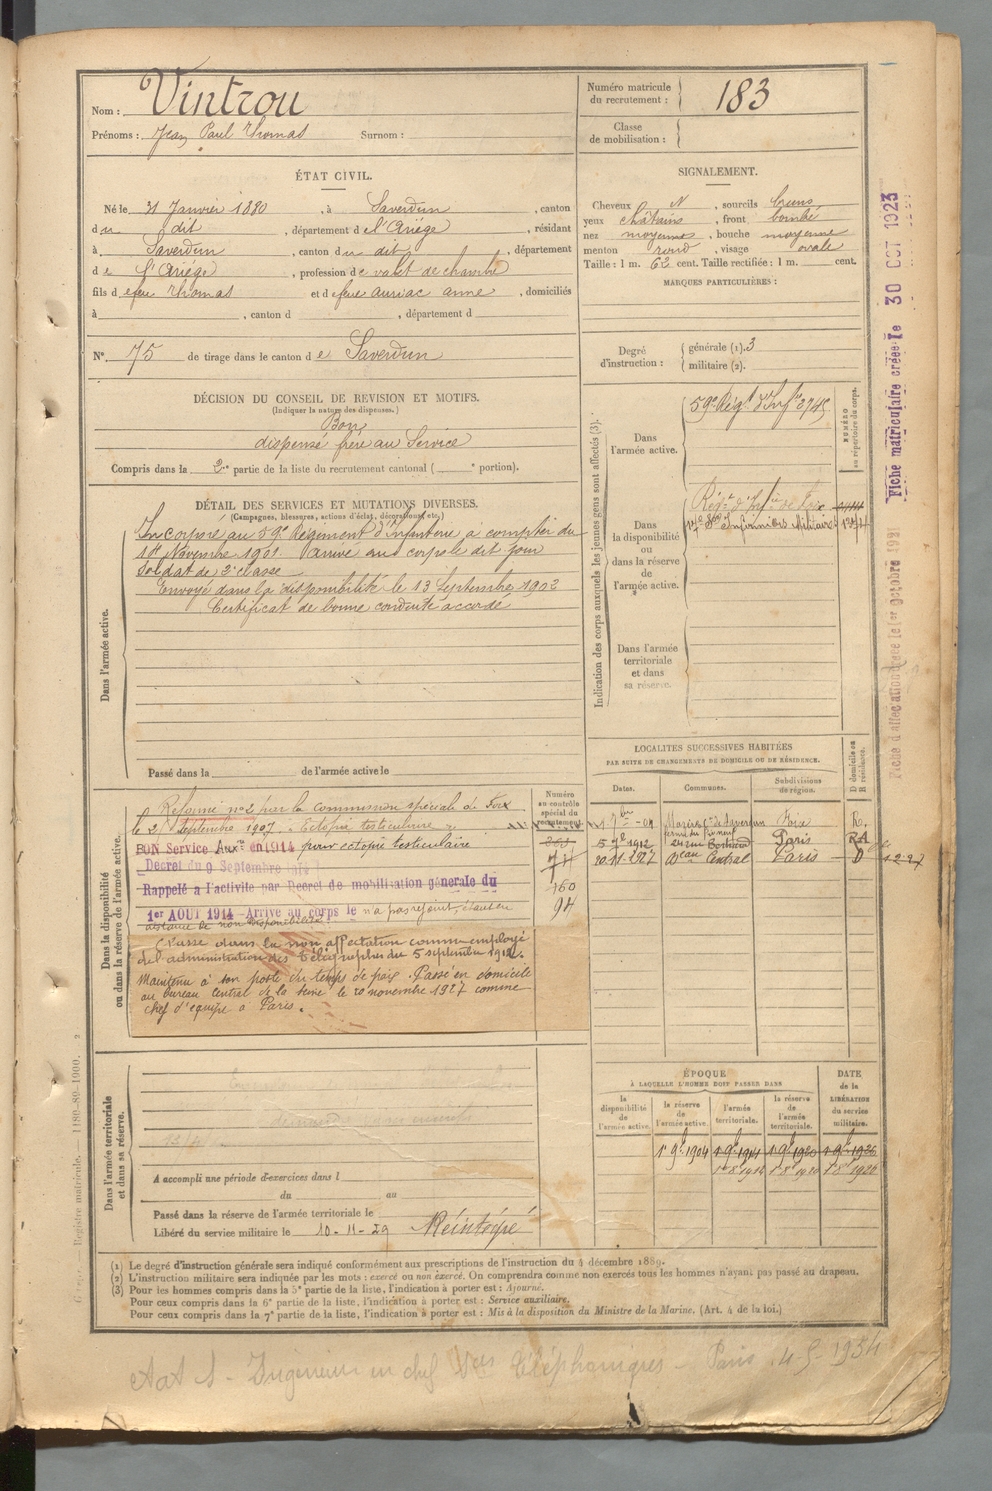 Nom : Vintrou
Prénoms : Jean Paul Thomas Surnom :
Numéro matricule du recrutement : 183
Classe de mobilisation :
ÉTAT CIVIL.
Né le 31 Janvier 1880, à Saverdun, canton
du dit, département de l'Ariége, résidant
à Saverdun, canton du dit, département
de l'Ariége, profession de valet de chambre
fils de feu Thomas et de feue auriac anne, domiciliés
à , canton d , département d
N° 75 de tirage dans le canton de Saverdun
SIGNALEMENT.
Cheveux N, sourcils bruns
yeux châtains, front bombé
nez moyenne, bouche moyenne
menton rond, visage ovale
Taille : 1 m. 62 cent. Taille rectifiée : 1 m. cent.
MARQUES PARTICULIÈRES :
Degré d'instruction : générale (1). 3
militaire (2).
DÉCISION DU CONSEIL DE REVISION ET MOTIFS.
(Indiquer la nature des dispenses.)
Bon
dispensé frère au Service
Compris dans la 2e partie de la liste du recrutement cantonal ( e portion).
DÉTAIL DES SERVICES ET MUTATIONS DIVERSES.
(Campagnes, blessures, actions d'éclat, décorations, etc.)
Dans l'armée active.
Incorporé au 59e Régiment d'Infanterie à compter du
Novembre 1901. arrivé au corps le dit jour
soldat de 2e classe
Envoyé dans la disponibilité le 13 Septembre 1902
Certificat de bonne conduite accordé
Passé dans la de l'armée active le
Indication des corps auxquels les jeunes gens sont affectés (3).
NUMÉRO au répertoire du corps.
Dans l'armée active.
59e Régt d'Infie 3745
Dans la disponibilité ou dans la réserve de l'armée active.
Régt d'Infie de Foix
17e Son Infirmiers Militaires
Dans l'armée territoriale et dans sa réserve.
LOCALITÉS SUCCESSIVES HABITÉES
PAR SUITE DE CHANGEMENTS DE DOMICILE OU DE RÉSIDENCE.
Dates. Communes. Subdivisions de région. D domicile ou R résidence.
Foix R.
1912 Paris RA
20.11.1927 Bau Central Paris D
Dans la disponibilité ou dans la réserve de l'armée active.
Numéro au contrôle spécial du recrutement
Réformé n° 2 par la Commission spéciale de Foix
le 21 Septembre 1907. Ectopie testiculaire
BON Service Auxre en 1914 pour ectopie testiculaire
Décret du 9 Septembre 1914
Rappelé à l'activité par Décret de mobilisation générale du
1er AOUT 1914 Arrivé au corps le n'a pas rejoint, étant en
distance de non disponibilité
160
94
Classé dans la non affectation comme employé
de l'administration des télégraphes du 5 septembre 1912.
Maintenu à son poste du temps de paix. Passé en domicile
au bureau central de la Seine le 20 novembre 1927 comme
chef d'équipe à Paris.
Dans l'armée territoriale et dans sa réserve.
A accompli une période d'exercices dans l
du au
Passé dans la réserve de l'armée territoriale le
Libéré du service militaire le 10-11-29 Réintégré
ÉPOQUE
À LAQUELLE L'HOMME DOIT PASSER DANS
la disponibilité de l'armée active. la réserve de l'armée active. l'armée territoriale. la réserve de l'armée territoriale.
DATE de la LIBÉRATION du service militaire.
1er 9bre 1904 1er 9bre 1914 1er 9bre 1920 1er 9bre 1926
(1) Le degré d'instruction générale sera indiqué conformément aux prescriptions de l'instruction du 4 décembre 1889.
(2) L'instruction militaire sera indiquée par les mots : exercé ou non exercé. On comprendra comme non exercés tous les hommes n'ayant pas passé au drapeau.
(3) Pour les hommes compris dans la 5e partie de la liste, l'indication à porter est : Ajourné.
Pour ceux compris dans la 6e partie de la liste, l'indication à porter est : Service auxiliaire.
Pour ceux compris dans la 7e partie de la liste, l'indication à porter est : Mis à la disposition du Ministre de la Marine. (Art. 4 de la loi.)
Ingénieur en chef Téléphoniques - Paris 4-5-1934
Fiche matriculaire créée le 30 OCT 1923
Fiche d'affectation créée le 1er octobre 1921
Registre matricule. — 1189-89-1900. 2